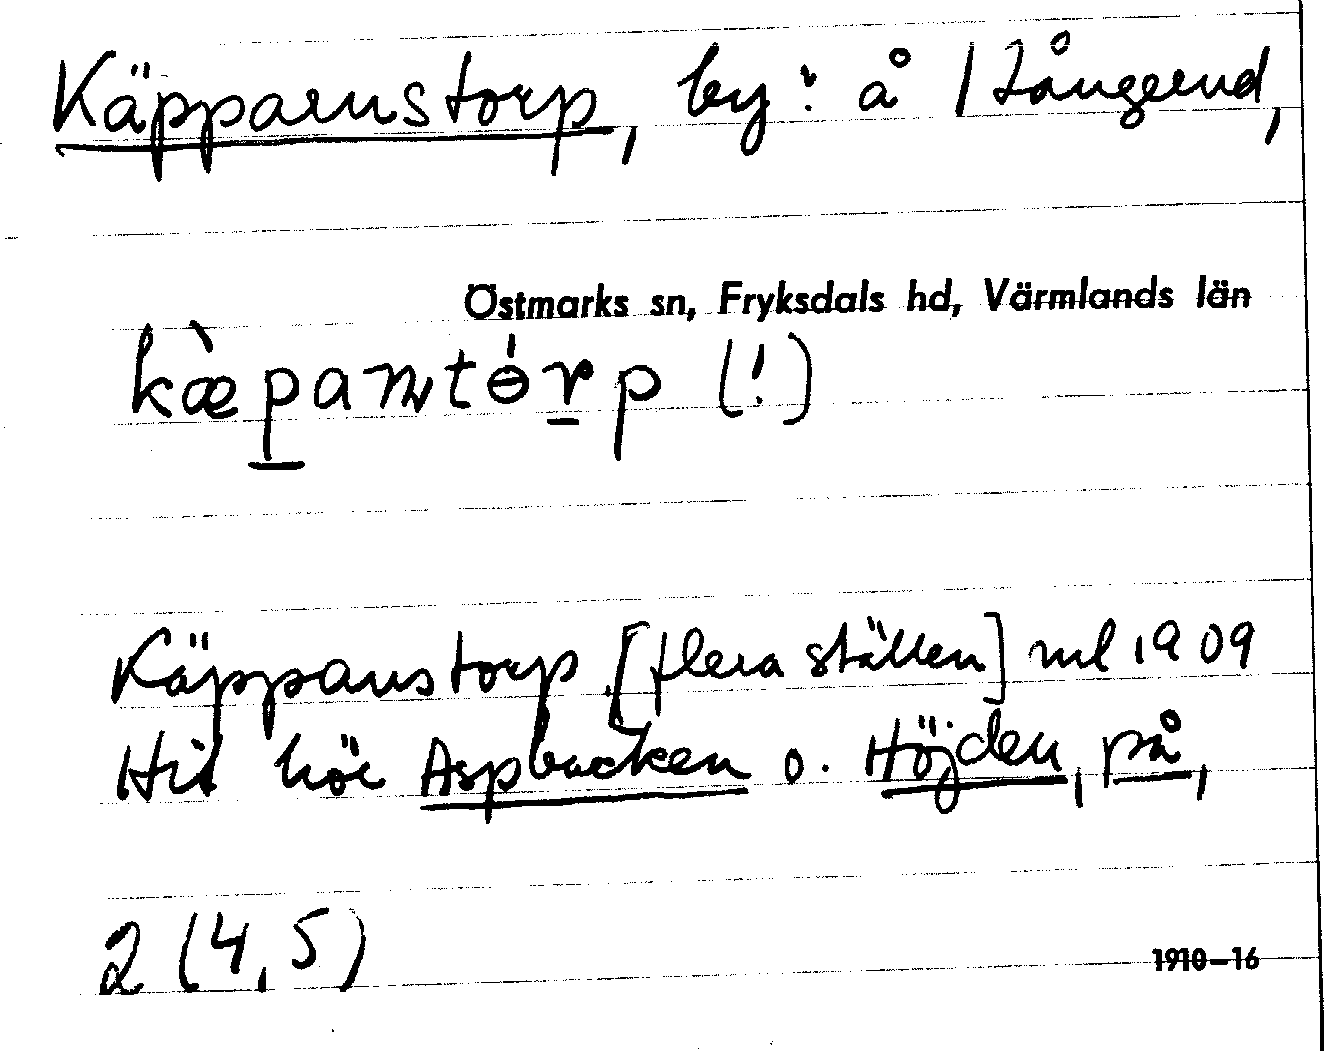 Käpparnstorp, by: å Långerud,
Östmarks sn, Fryksdals hd, Värmlands län
kæ̀pantɵ́rp (!)
Käppanstorp [flera ställen] ml 1909
Hit hör Aspbacken o. Höjden, på,
2 (4,5)
1910–16